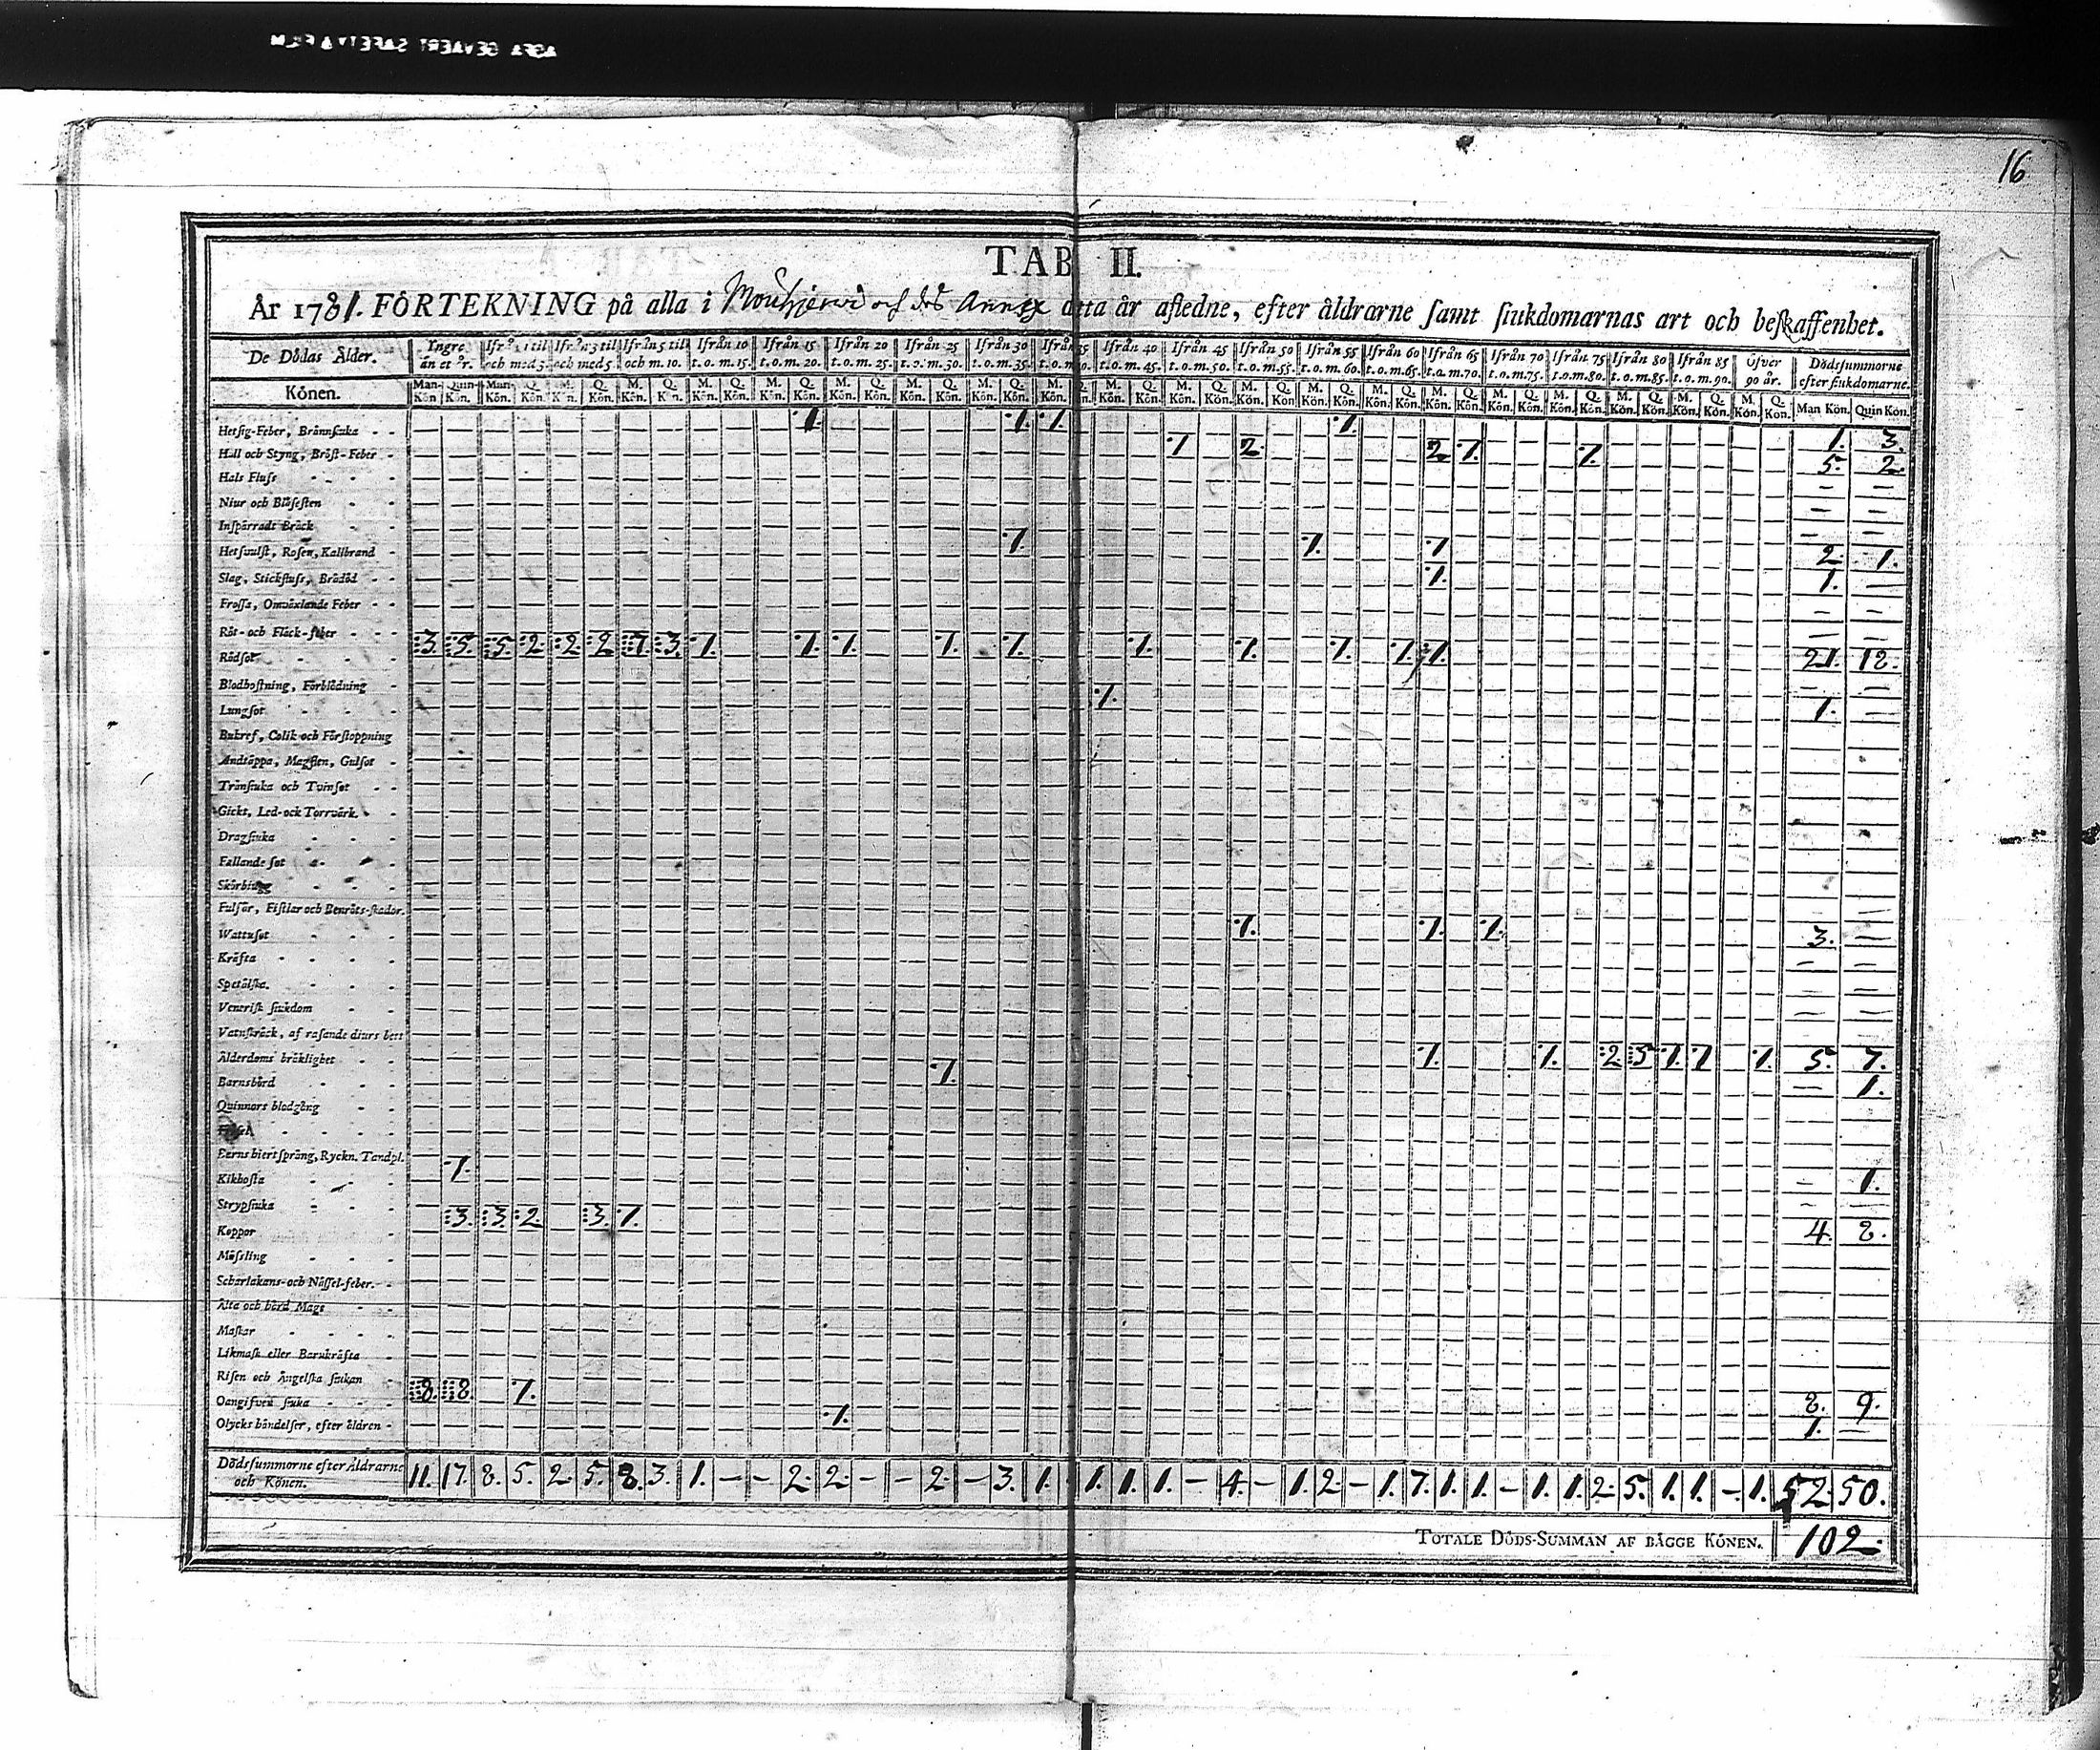 AGFA GEVAERT SAFETY FILM
16
TAB II.
År 1781. FÖRTEKNING på alla i Mouhijerwi och dess Annex detta år afledne, efter åldrarne samt siukdomarnas art och beskaffenhet.
De Dödas Ålder. Yngre än et år. Ifrån 1 til och med 3. Ifrån 3 til och med 5. Ifrån 5 til och m. 10. Ifrån 10 t.o.m. 15. Ifrån 15 t.o.m. 20. Ifrån 20 t.o.m. 25. Ifrån 25 t.o.m. 30. Ifrån 30 t.o.m. 35. Ifrån 35 t.o.m. 40. Ifrån 40 t.o.m. 45. Ifrån 45 t.o.m. 50. Ifrån 50 t.o.m. 55. Ifrån 55 t.o.m. 60. Ifrån 60 t.o.m. 65. Ifrån 65 t.o.m. 70. Ifrån 70 t.o.m. 75. Ifrån 75 t.o.m. 80. Ifrån 80 t.o.m. 85. Ifrån 85 t.o.m. 90. Öfver 90 år. Dödssummorne efter siukdomarne.
Könen. Man-Kön Quin-Kön. Man-Kön. Q. Kön. M. Kön. Q. Kön. M. Kön. Q. Kön. M. Kön. Q. Kön. M. Kön. Q. Kön. M. Kön. Q. Kön. M. Kön. Q. Kön. M. Kön. Q. Kön. M. Kön. Q. Kön. M. Kön. Q. Kön. M. Kön. Q. Kön. M. Kön. Q. Kön. M. Kön. Q. Kön. M. Kön. Q. Kön. M. Kön. Q. Kön. M. Kön. Q. Kön. M. Kön. Q. Kön. M. Kön. Q. Kön. M. Kön. Q. Kön. M. Kön. Q. Kön. Man Kön. Quin Kön.
Hetsig-Feber, Brännsiuka 1. 1. 1. 1. 1. 3.
Håll och Styng, Bröst-Feber 1 2. 2 1. 1. 5. 2.
Hals Fluss
Niur och Blåsesten
Inspärradt Bråck
Hetsvulst, Rosen, Kallbrand 1. 1. 1 2. 1.
Slag, Stickfluss, Brådöd 1. 1.
Frossa, Omväxlande Feber
Röt- och Fläck-feber
Rödsot 3. 5. 5. 2. 2. 2 7. 3. 1. 1. 1. 1. 1. 1. 1. 1. 1. 1. 21. 12.
Blodhostning, Förblödning
Lungsot 1. 1.
Bukref, Colik och Förstoppning
Andtäppa, Magsten, Gulsot
Trånsiuka och Tvinsot
Gickt, Led-ock Torrvärk.
Dragsiuka
Fallande sot
Skörbiugg
Fulsår, Fistlar och Benröts-skador.
Wattusot 1. 1. 1. 3.
Kräfta
Spetälska.
Venerisk siukdom
Vatnskräck, af rasande diurs bett
Ålderdoms bräklighet 1. 1. 2 5 1. 1 1. 5. 7.
Barnsbörd 1. 1.
Quinnors blodgång
Barns hiertspräng, Ryckn. Tandpl.
Kikhosta 1. 1.
Strypsiuka
Koppor 3. 3. 2 3. 1. 4. 8.
Mässling
Scharlakans-och Nässel-feber.
Älta och hård Mage
Maskar
Likmask eller Barnkräfta
Risen och Ängelska siukan
Oangifven siuka 8. 8. 1. 8. 9.
Olycks händelser, efter åldren 1. 1.
Dödssummorne efter Åldrarne
och Könen. 11. 17. 8. 5. 2. 5. 8. 3. 1. – – 2. 2. – – 2. – 3. 1. 1. 1. 1. – 4. – 1. 2. – 1. 7. 1. 1. – 1. 1. 2. 5. 1. 1. – 1. 52. 50.
TOTALE DÖDS-SUMMAN AF BÅGGE KÖNEN. 102.